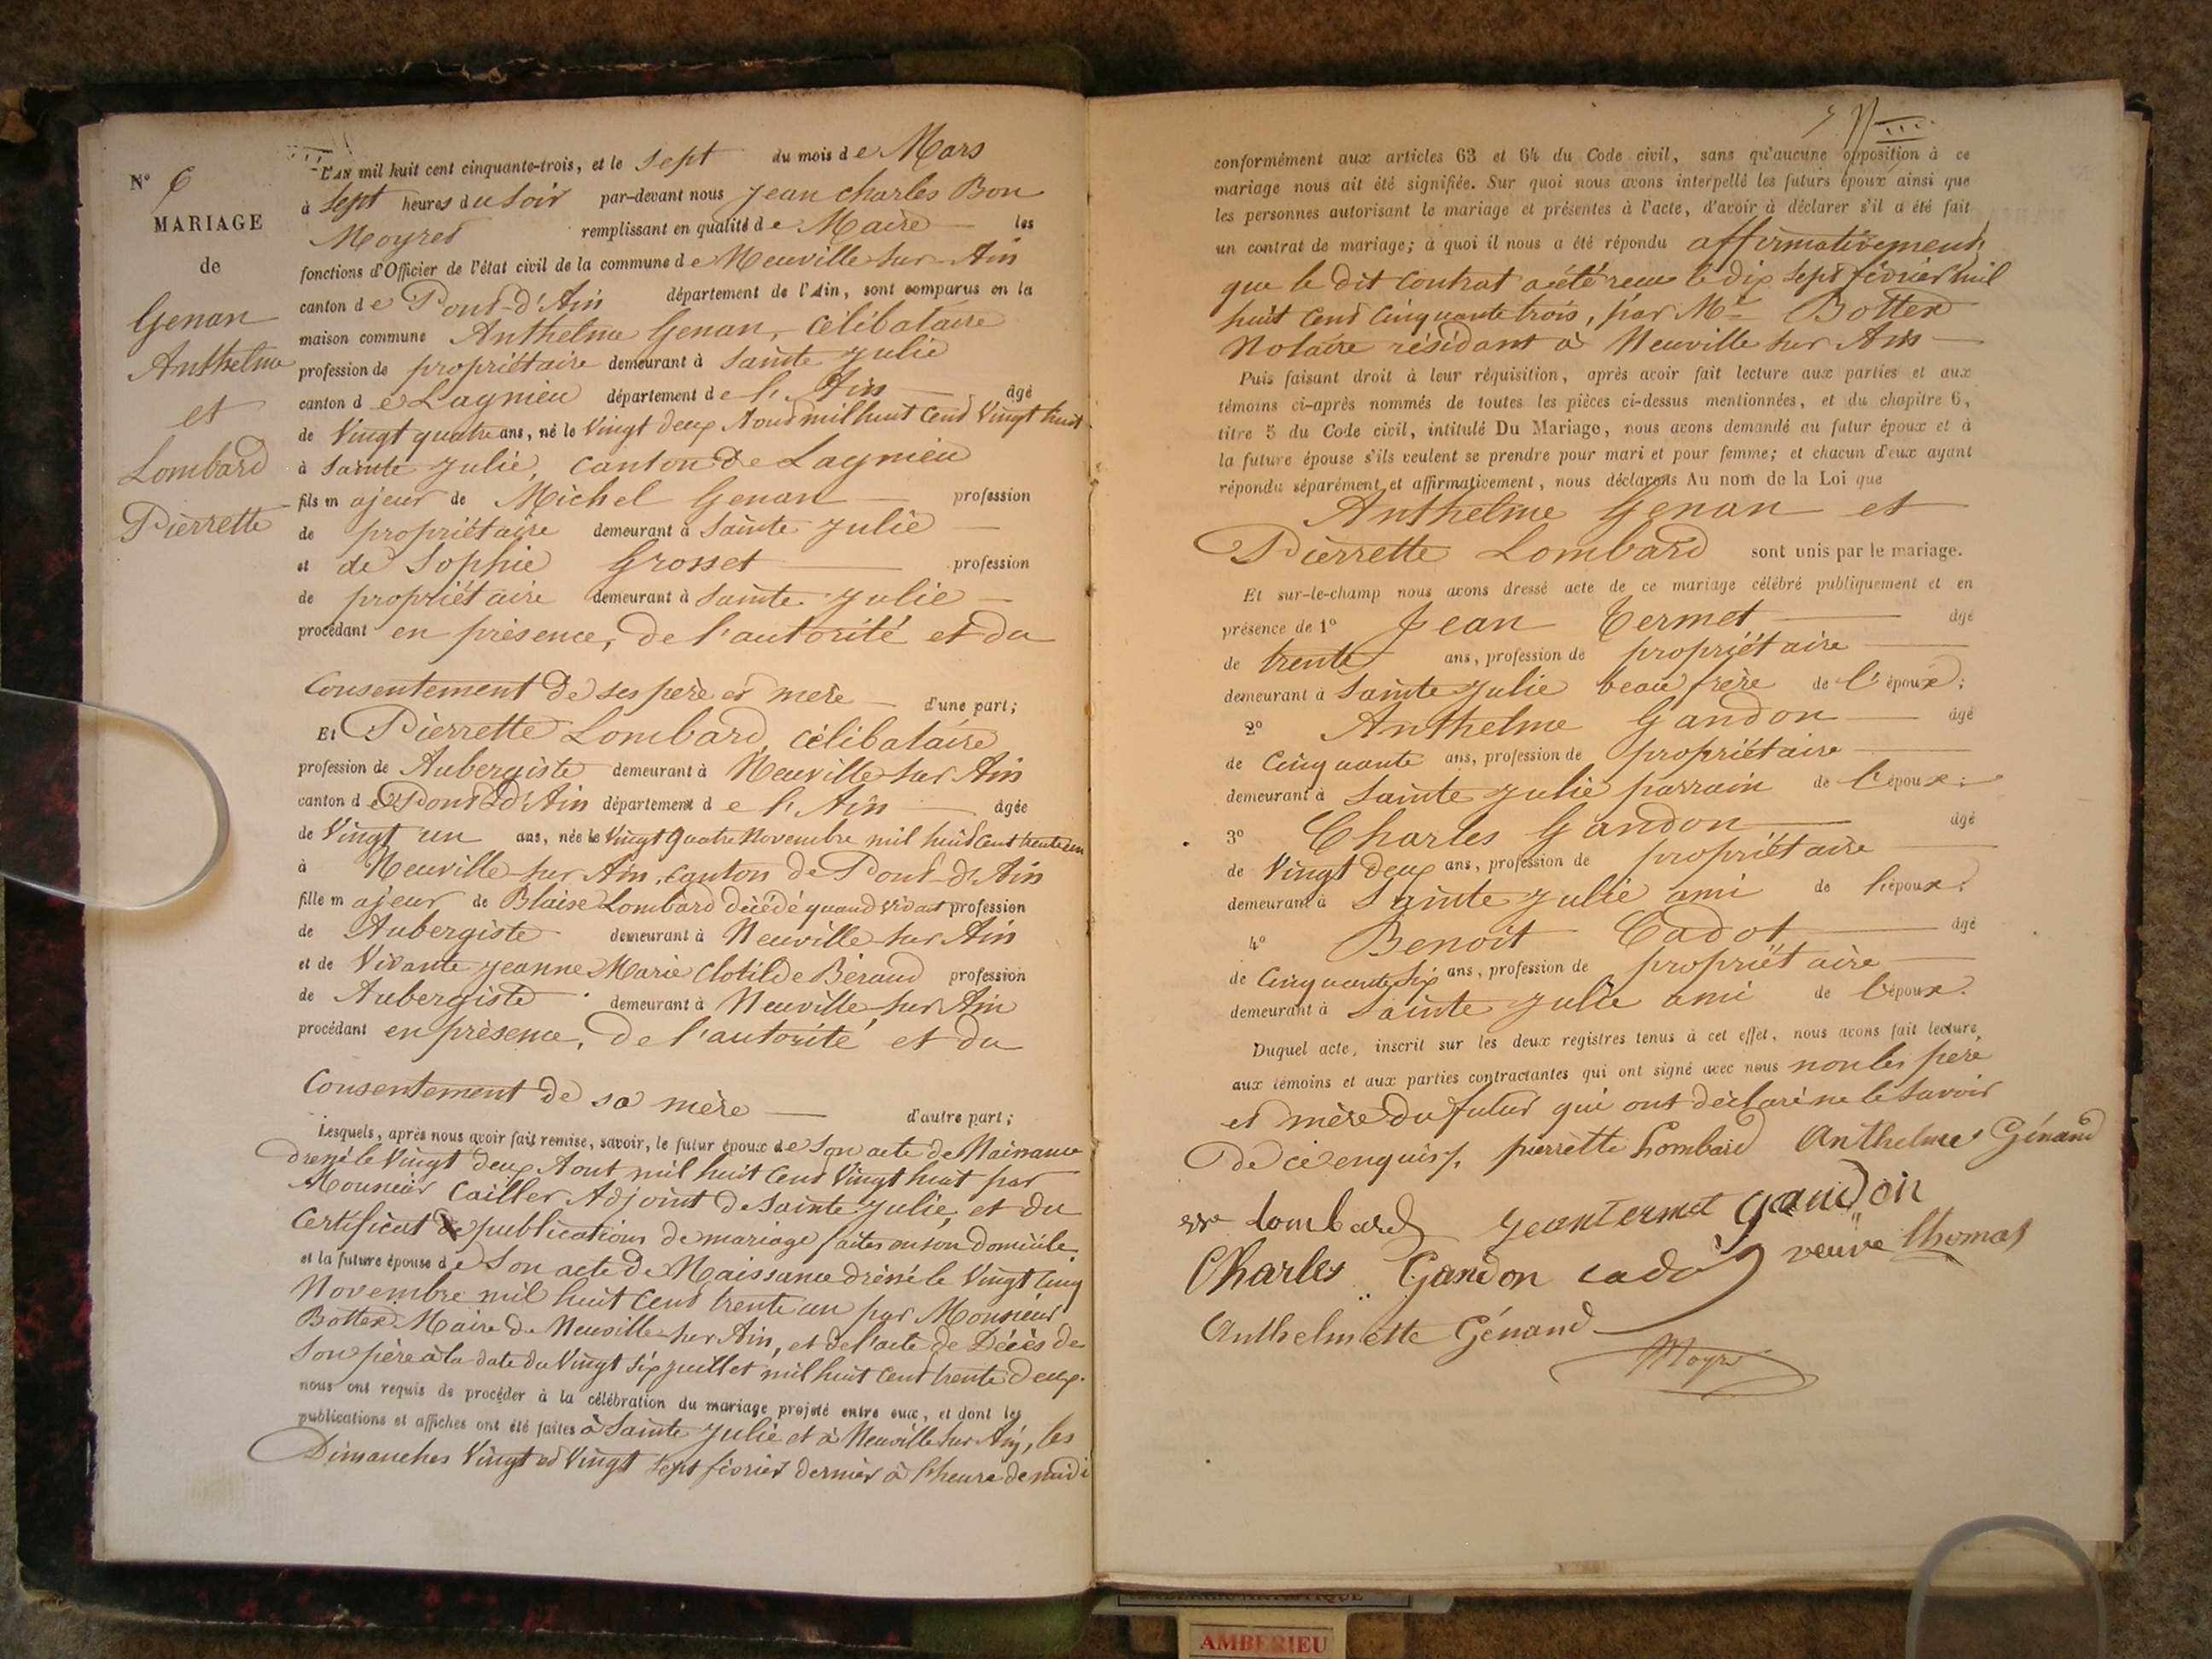 N° 6
MARIAGE
de
Genan
Anthelme
et
Lombard
Pierrette
L'AN mil huit cent cinquante-trois, et le sept du mois de Mars
à sept heures du Soir par-devant nous Jean Charles Bon
Moyret remplissant en qualité de Maire les
fonctions d'Officier de l'état civil de la commune de Neuville sur Ain
canton de Pont-d'Ain département de l'Ain, sont comparus en la
maison commune Anthelme Genan, Célibataire
profession de propriétaire demeurant à Sainte Julie
canton de Lagnieu département de l'Ain âgé
de Vingt quatre ans, né le Vingt deux Aout mil huit Cent Vingt huit
à Sainte Julie, Canton de Lagnieu
fils majeur de Michel Genan profession
de propriétaire demeurant à Sainte Julie
et de Sophie Grosset profession
de propriétaire demeurant à Sainte Julie
procédant en présence, De l'autorité et du
Consentement De ses père et mère d'une part;
Et Pierrette Lombard, célibataire
profession de Aubergiste demeurant à Neuville sur Ain
canton de Pont d'Ain département de l'Ain âgée
de Vingt un ans, née le Vingt quatre Novembre mil huit Cent trente un
à Neuville sur Ain, Canton De Pont-d'Ain
fille majeur de Blaise Lombard décédé quand vivait profession
de Aubergiste demeurant à Neuville sur Ain
et de Vivante Jeanne Marie Clotilde Béraud profession
de Aubergiste demeurant à Neuville sur Ain
procédant en présence, De l'autorité et du
Consentement De sa mère d'autre part;
Lesquels, après nous avoir fait remise, savoir, le futur époux de Son acte de Naissance
dressé le Vingt deux Aout mil huit Cent Vingt huit par
Monsieur Cailler Adjoint De Sainte Julie, et du
Certificat De publications de mariage faites en son domicile.
et la future épouse de Son acte De Naissance dressé le Vingt cinq
Novembre mil huit Cent trente un par Monsieur
Bottex Maire De Neuville sur Ain, et de l'acte de Décès de
Son père à la date du Vingt six juillet mil huit Cent trente deux.
nous ont requis de procéder à la célébration du mariage projeté entre eux, et dont les
publications et affiches ont été faites à Sainte Julie et à Neuville sur Ain, les
Dimanches Vingt et Vingt sept février dernier à l'heure de midi
conformément aux articles 63 et 64 du Code civil, sans qu'aucune opposition à ce
mariage nous ait été signifiée. Sur quoi nous avons interpellé les futurs époux ainsi que
les personnes autorisant le mariage et présentes à l'acte, d'avoir à déclarer s'il a été fait
un contrat de mariage; à quoi il nous a été répondu affirmativement,
que le dit Contrat a été reçu le dix sept février mil
huit Cent Cinquante trois, par Me Bottex
Notaire résidant à Neuville sur Ain
Puis faisant droit à leur réquisition, après avoir fait lecture aux parties et aux
témoins ci-après nommés de toutes les pièces ci-dessus mentionnées, et du chapitre 6,
titre 5 du Code civil, intitulé Du Mariage, nous avons demandé au futur époux et à
la future épouse s'ils veulent se prendre pour mari et pour femme; et chacun d'eux ayant
répondu séparément et affirmativement, nous déclarons Au nom de la Loi que
Anthelme Genan et
Pierrette Lombard sont unis par le mariage.
Et sur-le-champ nous avons dressé acte de ce mariage célébré publiquement et en
présence de 1° Jean Termet âgé
de trente ans, profession de propriétaire
demeurant à Sainte Julie beau frère de l'époux;
2° Anthelme Gandon âgé
de Cinquante ans, profession de propriétaire
demeurant à Sainte Julie parrain de l'époux;
3° Charles Gandon âgé
de Vingt deux ans, profession de propriétaire
demeurant à Sainte Julie ami de l'époux;
4° Benoit Cadot âgé
de Cinquante six ans, profession de propriétaire
demeurant à Sainte Julie ami de l'époux.
Duquel acte, inscrit sur les deux registres tenus à cet effet, nous avons fait lecture
aux témoins et aux parties contractantes qui ont signé avec nous non les père
et mère du futur qui ont déclaré ne le Savoir
De ce enquis. pierrette Lombard Anthelme Génand
vve Lombard Jean termet gandon
Charles Gandon cadot veuve thomas
Anthelmette Génand
Moyret
AMBERIEU